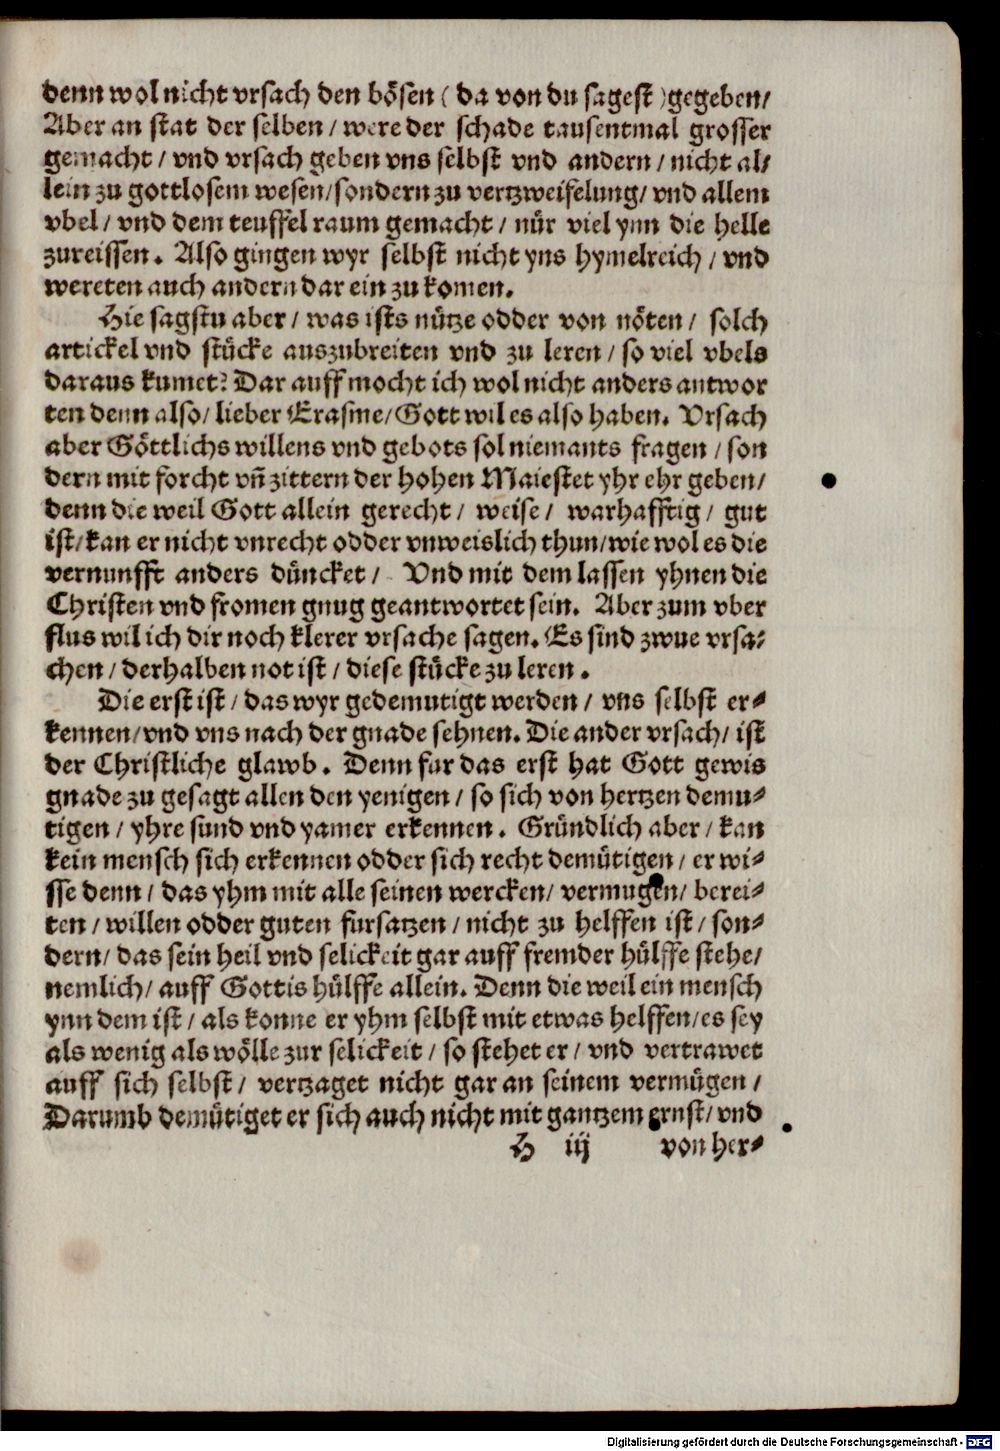 denn wol nicht vrsach den bösen ( da von du sagest ) gegeben/
Aber an stat der selben / were der schade tausentmal grosser
gemacht / vnd vrsach geben vns selbst vnd andern / nicht al/
lein zu gottlosem wesen/sondern zu vertzweifelung/ vnd allem
vbel / vnd dem teuffel raum gemacht / nür viel ynn die helle
zureissen. Also gingen wyr selbst nicht yns hymelreich / vnd
wereten auch andern dar ein zu komen.
Hie sagstu aber / was ists nütze odder von nöten / solch
artickel vnd stücke auszubreiten vnd zu leren / so viel vbels
daraus kumet? Dar auff mocht ich wol nicht anders antwor
ten denn also/ lieber Erasme/Gott wil es also haben. Vrsach
aber Göttlichs willens vnd gebots sol niemants fragen / son
dern mit forcht vn̄ zittern der hohen Maiestet yhr ehr geben/
denn die weil Gott allein gerecht / weise / warhafftig / gut
ist/kan er nicht vnrecht odder vnweislich thun/wie wol es die
vernunfft anders düncket / Vnd mit dem lassen yhnen die
Christen vnd fromen gnug geantwortet sein. Aber zum vber
flus wil ich dir noch klerer vrsache sagen. Es sind zwue vrsa⸗
chen / derhalben not ist / diese stücke zu leren .
Die erst ist / das wyr gedemutigt werden / vns selbst er⸗
kennen/vnd vns nach der gnade sehnen. Die ander vrsach/ ist
der Christliche glawb . Denn fur das erst hat Gott gewis
gnade zu gesagt allen den yenigen / so sich von hertzen demu⸗
tigen / yhre sund vnd yamer erkennen . Gründlich aber / kan
kein mensch sich erkennen odder sich recht demütigen / er wi⸗
sse denn / das yhm mit alle seinen wercken/ vermugen/ berei⸗
ten / willen odder guten fursatzen / nicht zu helffen ist / son⸗
dern/ das sein heil vnd selickeit gar auff fremder hülffe stehe/
nemlich/ auff Gottis hülffe allein. Denn die weil ein mensch
ynn dem ist / als konne er yhm selbst mit etwas helffen/es sey
als wenig als wölle zur selickeit / so stehet er / vnd vertrawet
auff sich selbst / vertzaget nicht gar an seinem vermügen /
Darumb demütiget er sich auch nicht mit gantzem ernst/ vnd
H iij von her⸗
Digitalisierung gefördert durch die Deutsche Forschungsgemeinschaft - DFG